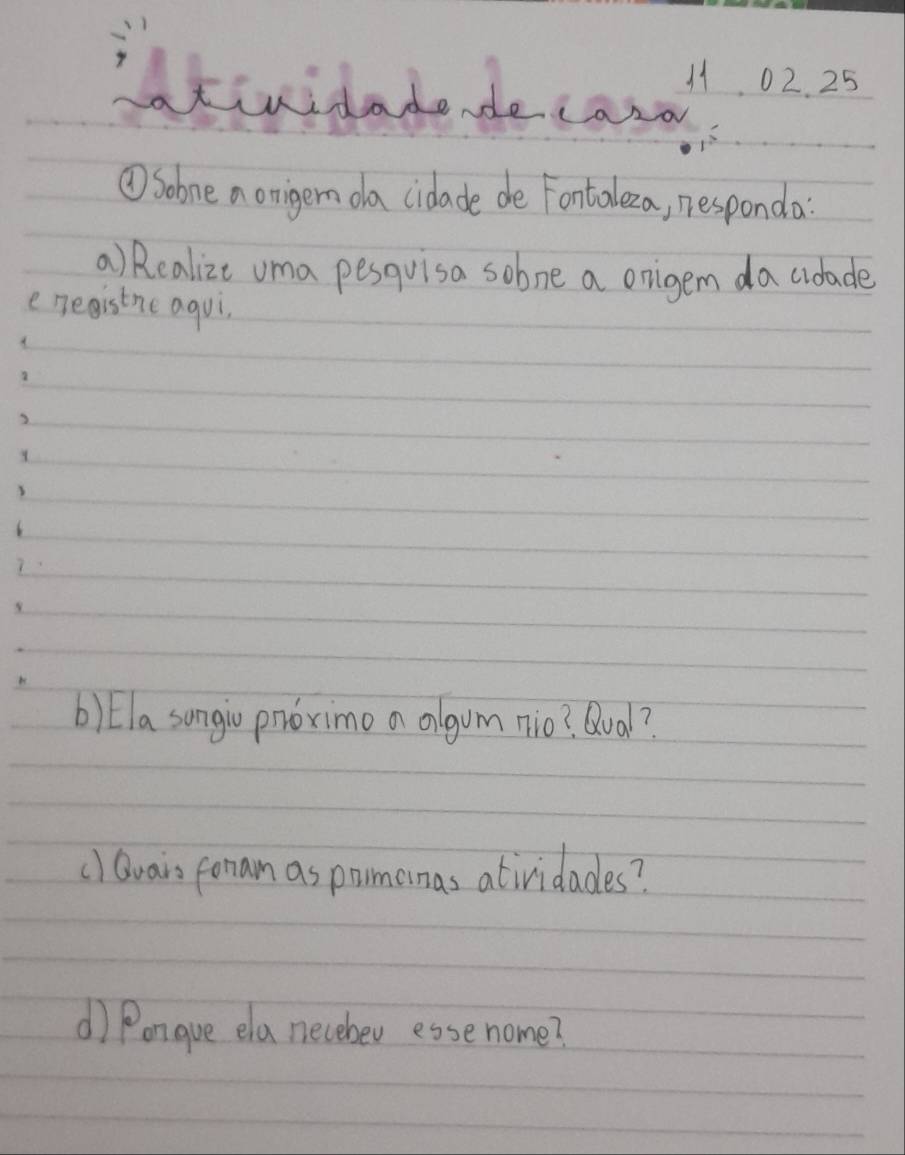 Atividade de casa
11.02.25
① Sobre a origem da cidade de Fortaleza, responda:
a) Realize uma pesquisa sobre a origem da cidade
e registre aqui.
1
2
3
4
5
6
7
8
b) Ela surgiu próximo a algum rio? Qual?
c) Quais foram as primeiras atividades?
d) Porque ela recebeu esse nome?